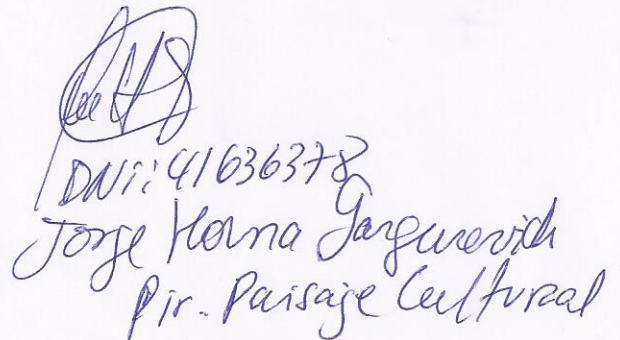 DNi: 41636378
Jorge Horna Gargurevich
Dir. Paisaje Cultural